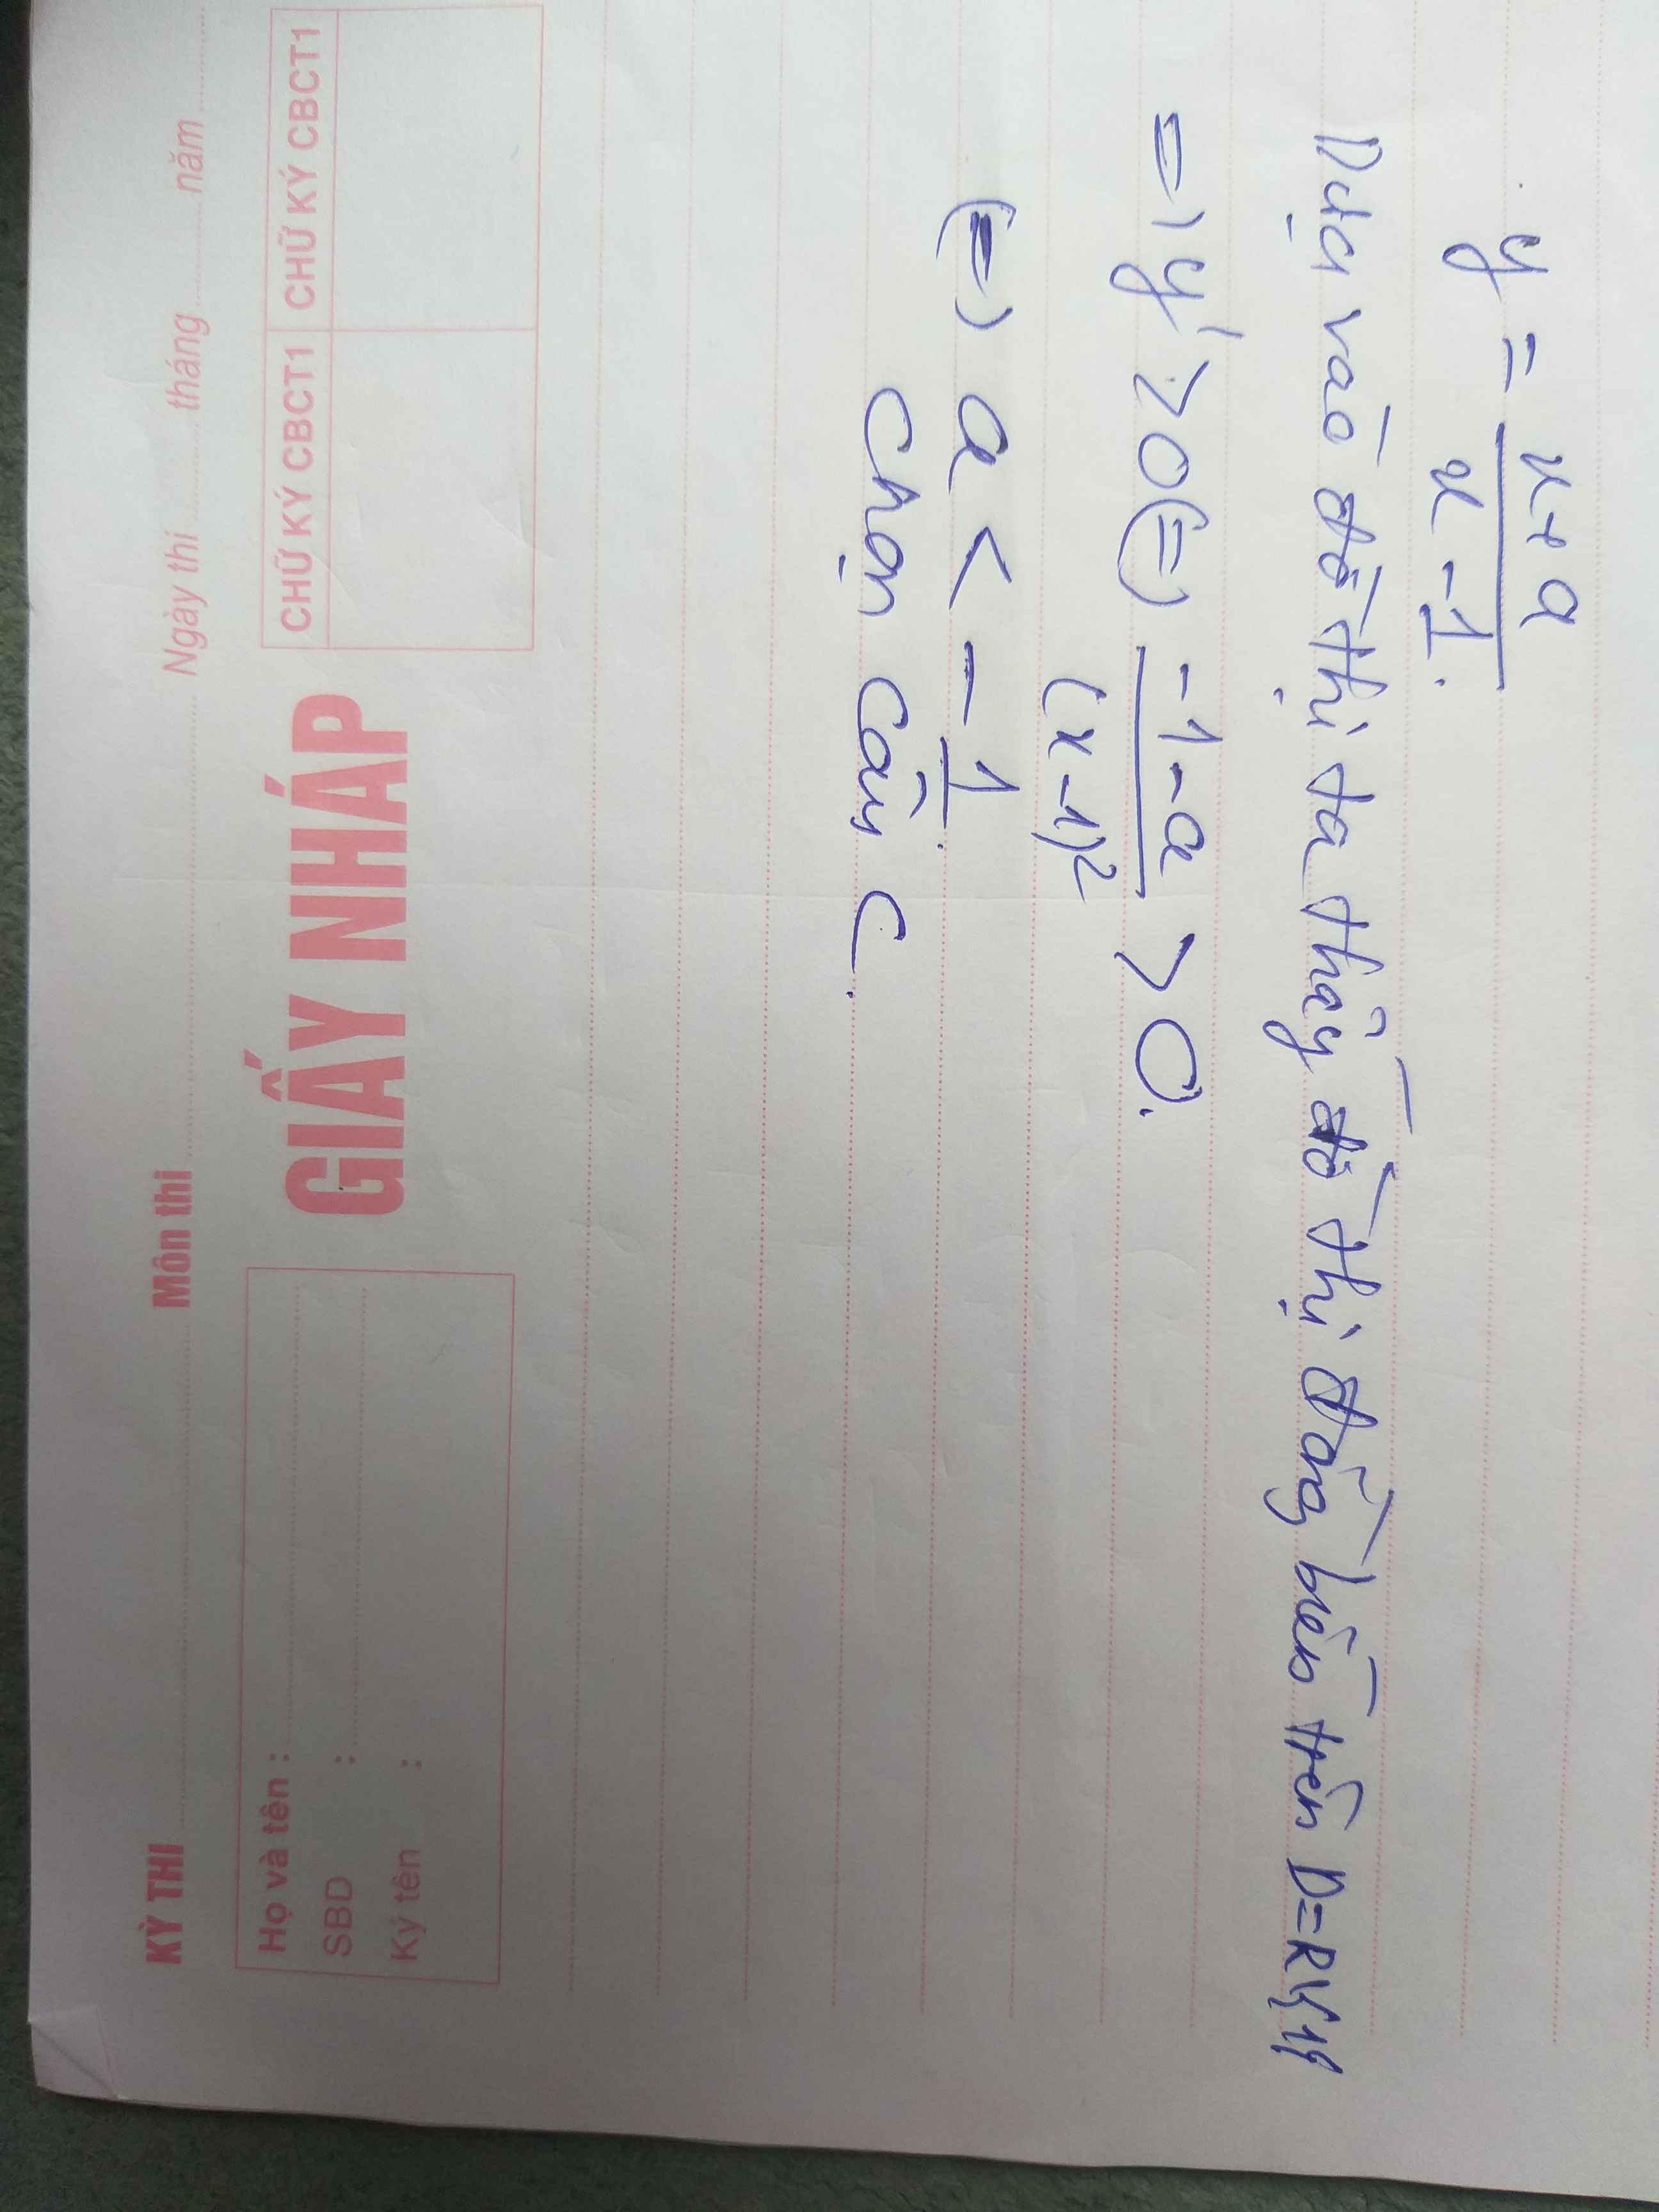 KỲ THI ........ Môn thi ........ Ngày thi ...... tháng ...... năm ......
Họ và tên :
SBD :
Ký tên :
GIẤY NHÁP
CHỮ KÝ CBCT1 CHỮ KÝ CBCT1
y = x+a / x-1.
Dựa vào đồ thị ta thấy đồ thị đồng biến trên D=R\{1}
=) y' >0 (=) -1-a / (x-1)² > 0.
(=) a < -1.
chọn câu C.